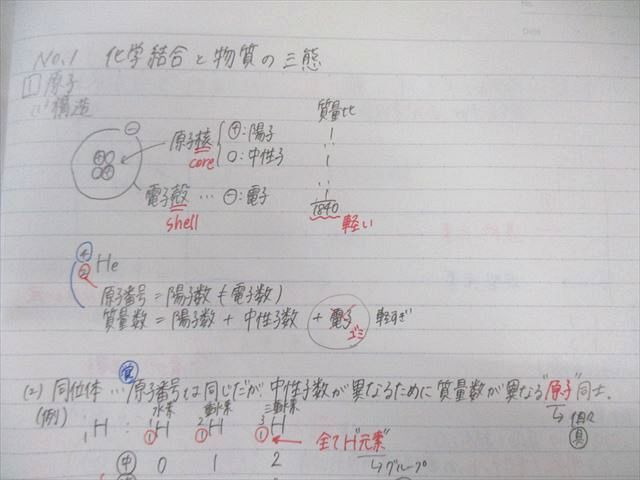 No.1 化学結合と物質の三態
1 原子
(1) 構造
質量比
⊖ 原子核 ⊕:陽子 1
core ○:中性子 1
電子殻 … ⊖:電子 1/1840
shell 軽い
4
2 He
原子番号 = 陽子数 (= 電子数)
質量数 = 陽子数 + 中性子数 + 電子 軽すぎ
ゴミ
(2) 同位体 … 原子番号は同じだが、中性子数が異なるために質量数が異なる"原子"同士.
水素 重水素 三重水素 ↳ 個々
(例) 1H : 1 1H 2 1H 3 1H ← 全てH"元素"
↳グループ
中 0 1 2